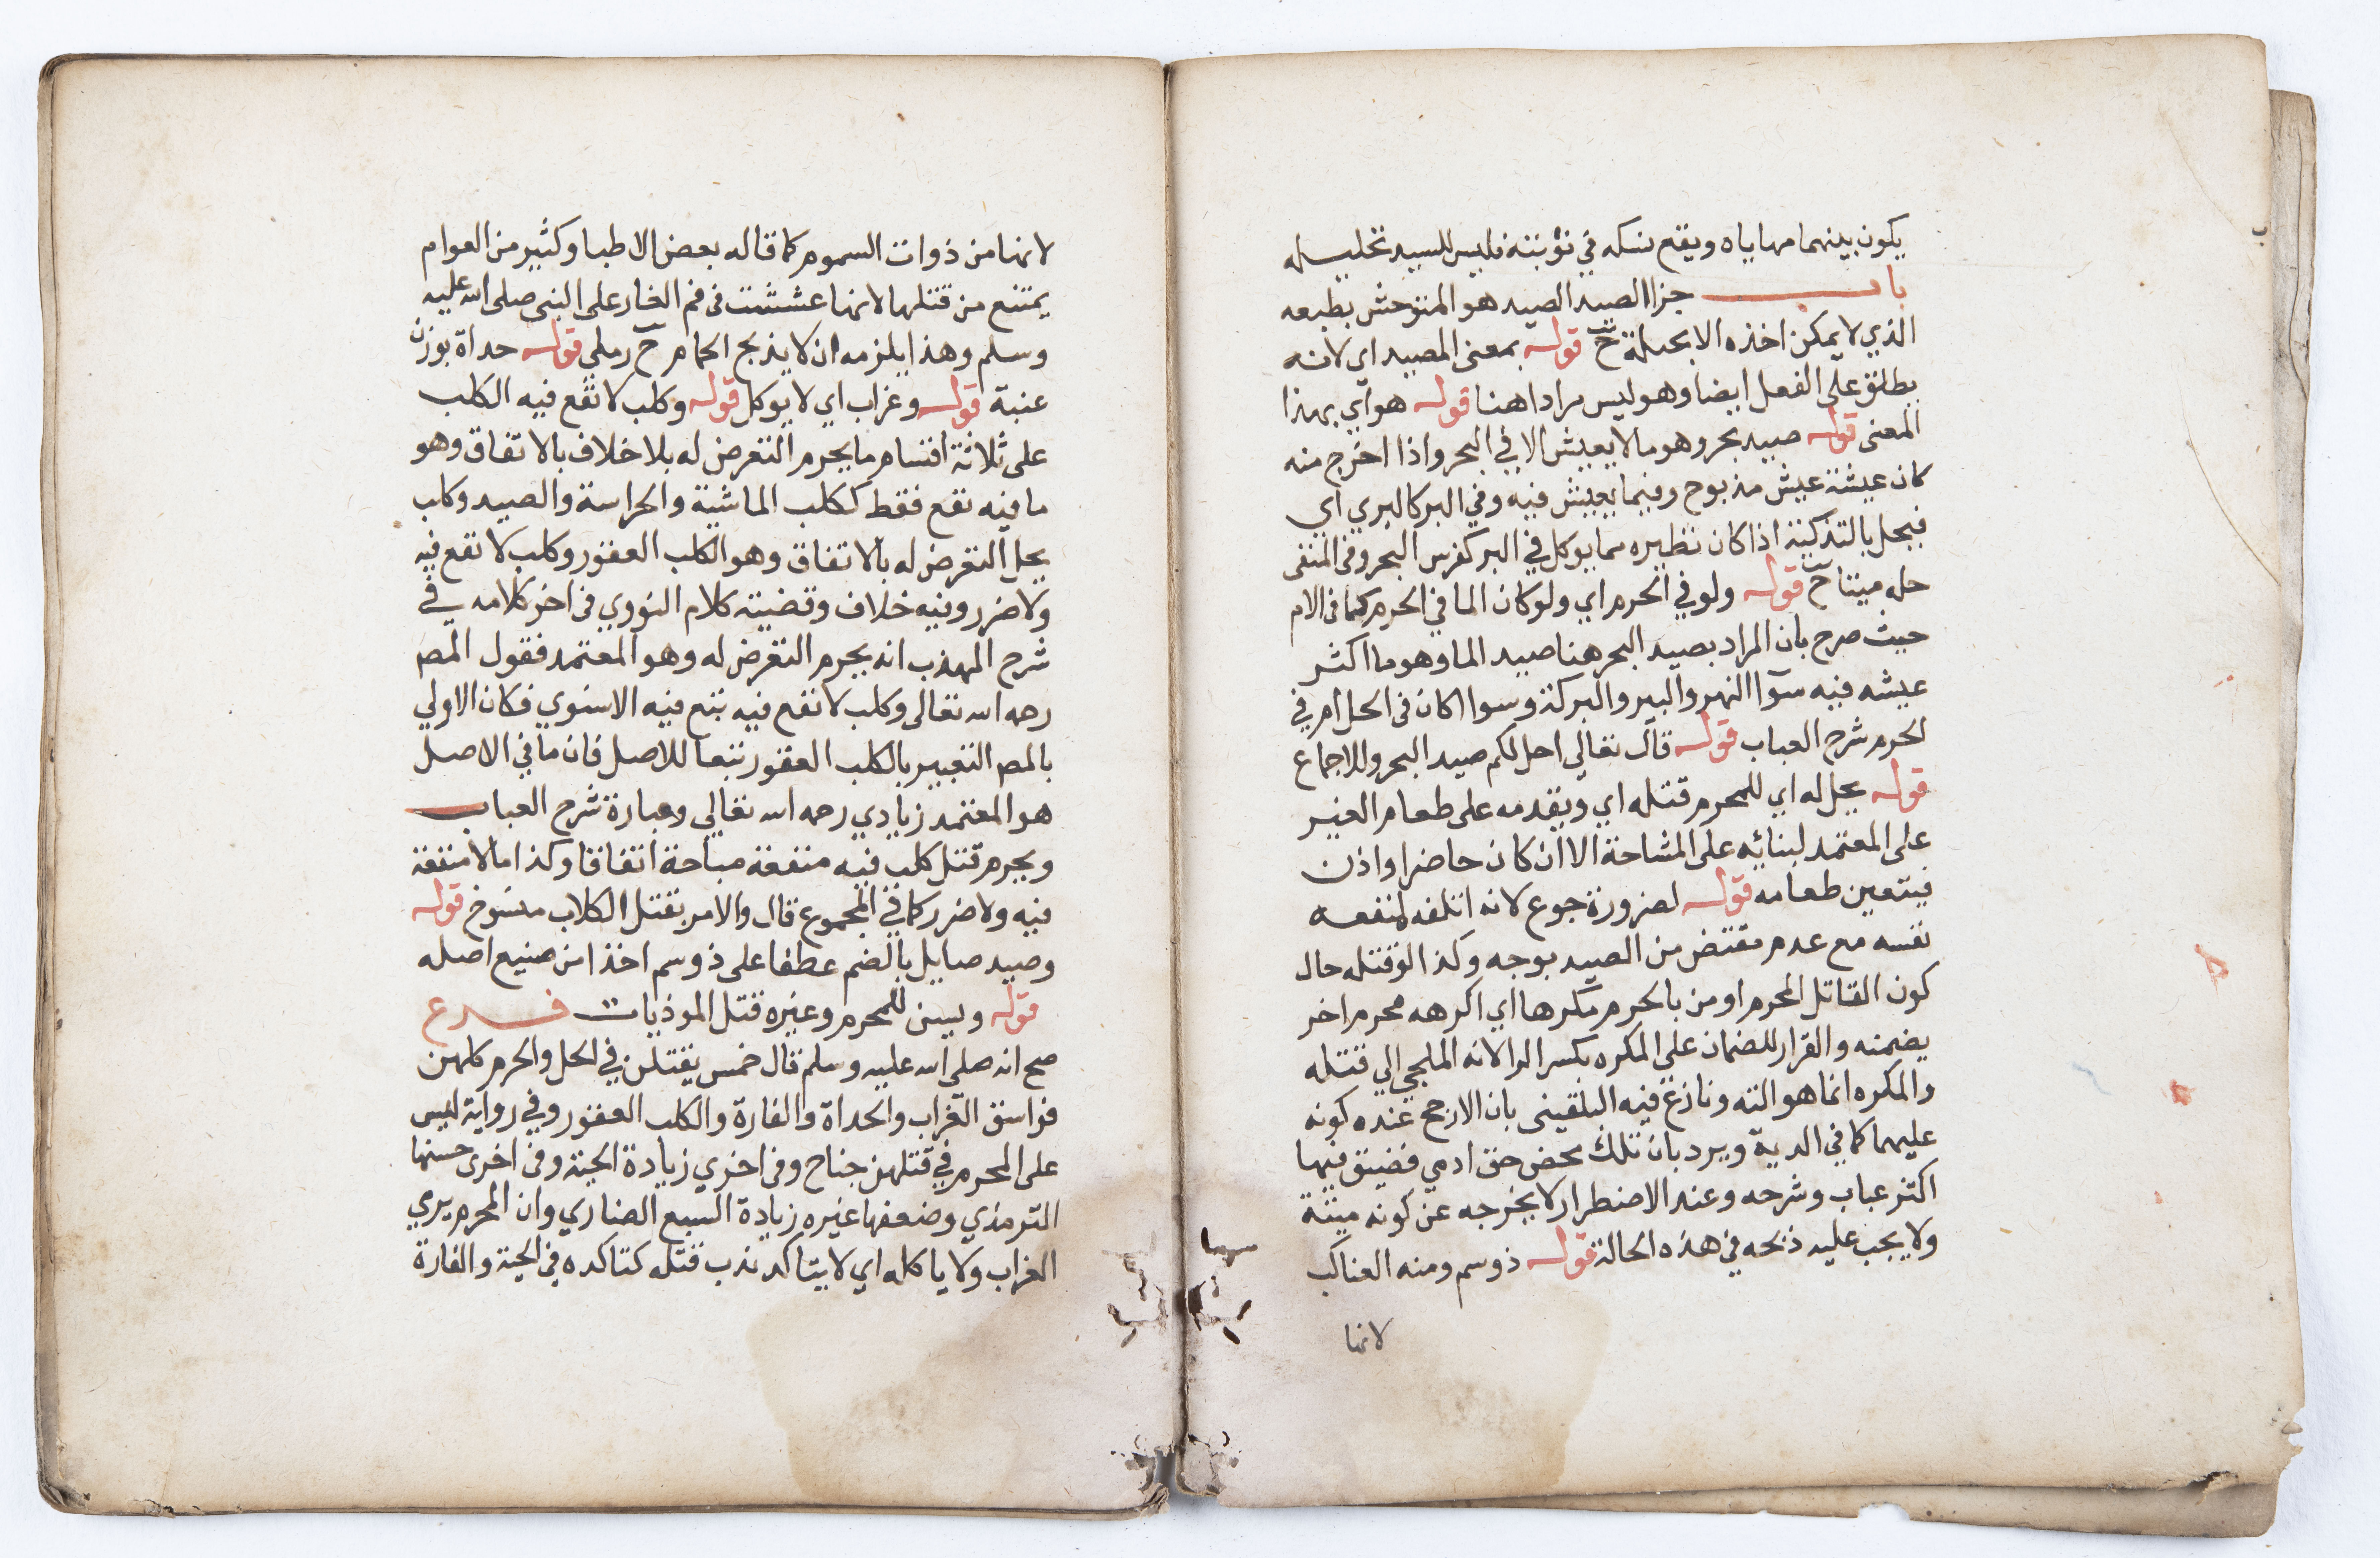 يكون بينهما مهاياه ويقع نسكه في نوبته فليس للسيد تحليله
باب جزا الصيد الصيد هو المتوحش بطبعه
الذي لا يمكن اخذه الا بحيلة ح قوله بمعنى المصيد اي لانه
يطلق على الفعل ايضا وهو ليس مرادا هنا قوله هو اي بهذا
المعنى قوله صيد بحر وهو ما لا يعيش الا في البحر واذا اخرج منه
كان عيشة عيش مذبوح وفيما يعيش فيه وفي البر كالبري اي
فيحل بالتذكية اذا كان نظيره مما يوكل في البر كفرس البحر وفي المنفى
حله ميتا ح قوله ولو في الحرم اي ولو كان الما في الحرم كما في الام
حيث صرح بان المراد بصيد البحر هنا صيد الما وهو ما اكثر
عيشه فيه سوآ النهر والبير والبركة وسوا اكان في الحل ام في
الحرم شرح العباب قوله قال تعالي احل لكم صيد البحر وللاجماع
قوله يحل له اي للمحرم قتله اي ويقدمه على طعام الغير
على المعتمد لبنائه على المشاحة الا ان كان حاضرا واذن
فيتعين طعامه قوله لضرورة جوع لانه اتلفه لمنفعه
نفسه مع عدم مقتض من الصيد بوجه وكذا لو قتله حال
كون القاتل المحرم او من بالحرم مكرها اي اكرهه محرم اخر
يضمنه والقرار للضمان على المكره بكسر الرا لانه الملجي الي قتله
والمكره انما هو الته ونازع فيه البلقيني بان الارجح عنده كونه
عليهما كما في الدية ويرد بان تلك محض حق ادمي فضيق فيها
اكثر عباب وشرحه وعند الاضطرار لا يخرجه عن كونه ميتة
ولا يجب عليه ذبحه في هذه الحالة قوله ذو سم ومنه العناكب
لانها
لانها من ذوات السموم كما قاله بعض الاطبا وكثير من العوام
يمتنع من قتلها لانها عششت في فم الغار على النبي صلى الله عليه
وسلم وهذا يلزمه ان لا يذبح الحمام ح رملي قوله حداة بوزن
عنبة قوله وغراب اي لا يوكل قوله وكلب لا نفع فيه الكلب
على ثلاثة اقسام ما يحرم التعرض له بلا خلاف بالاتفاق وهو
ما فيه نفع فقط ككلب الماشية والحراسة والصيد وكلب
يحل التعرض له بالاتفاق وهو الكلب العقور وكلب لا نفع فيه
ولا ضرر وفيه خلاف وقضية كلام النووي في اخر كلامه في
شرح المهذب انه يحرم التعرض له وهو المعتمد فقول المص
رحمه الله تعالى وكلب لا نفع فيه تبع فيه الاسنوي فكان الاولي
بالمص التعبير بالكلب العقور تبعا للاصل فان ما في الاصل
هو المعتمد زيادي رحمه الله تعالي وعبارة شرح العباب
ويحرم قتل كلب فيه منفعة مباحة اتفاقا وكذا ما لا منفعة
فيه ولا ضرر كما في المجموع قال والامر بقتل الكلاب منسوخ قوله
وصيد صايل بالضم عطفا على ذو سم اخذا من صنيع اصله
قوله ويسن للمحرم وغيره قتل الموذيات فرع
صح انه صلى الله عليه وسلم قال خمس يقتلن في الحل والحرم كلهن
فواسق الغراب والحداة والفارة والكلب العقور وفي رواية ليس
على المحرم في قتلهن جناح وفي اخري زيادة الحية وفي اخرى حسنها
الترمذي وضعفها غيره زيادة السبع الضاري وان المحرم يرمي
الغراب ولا ياكله اي لا يتاكد ندب قتله كتاكده في الحية والفارة